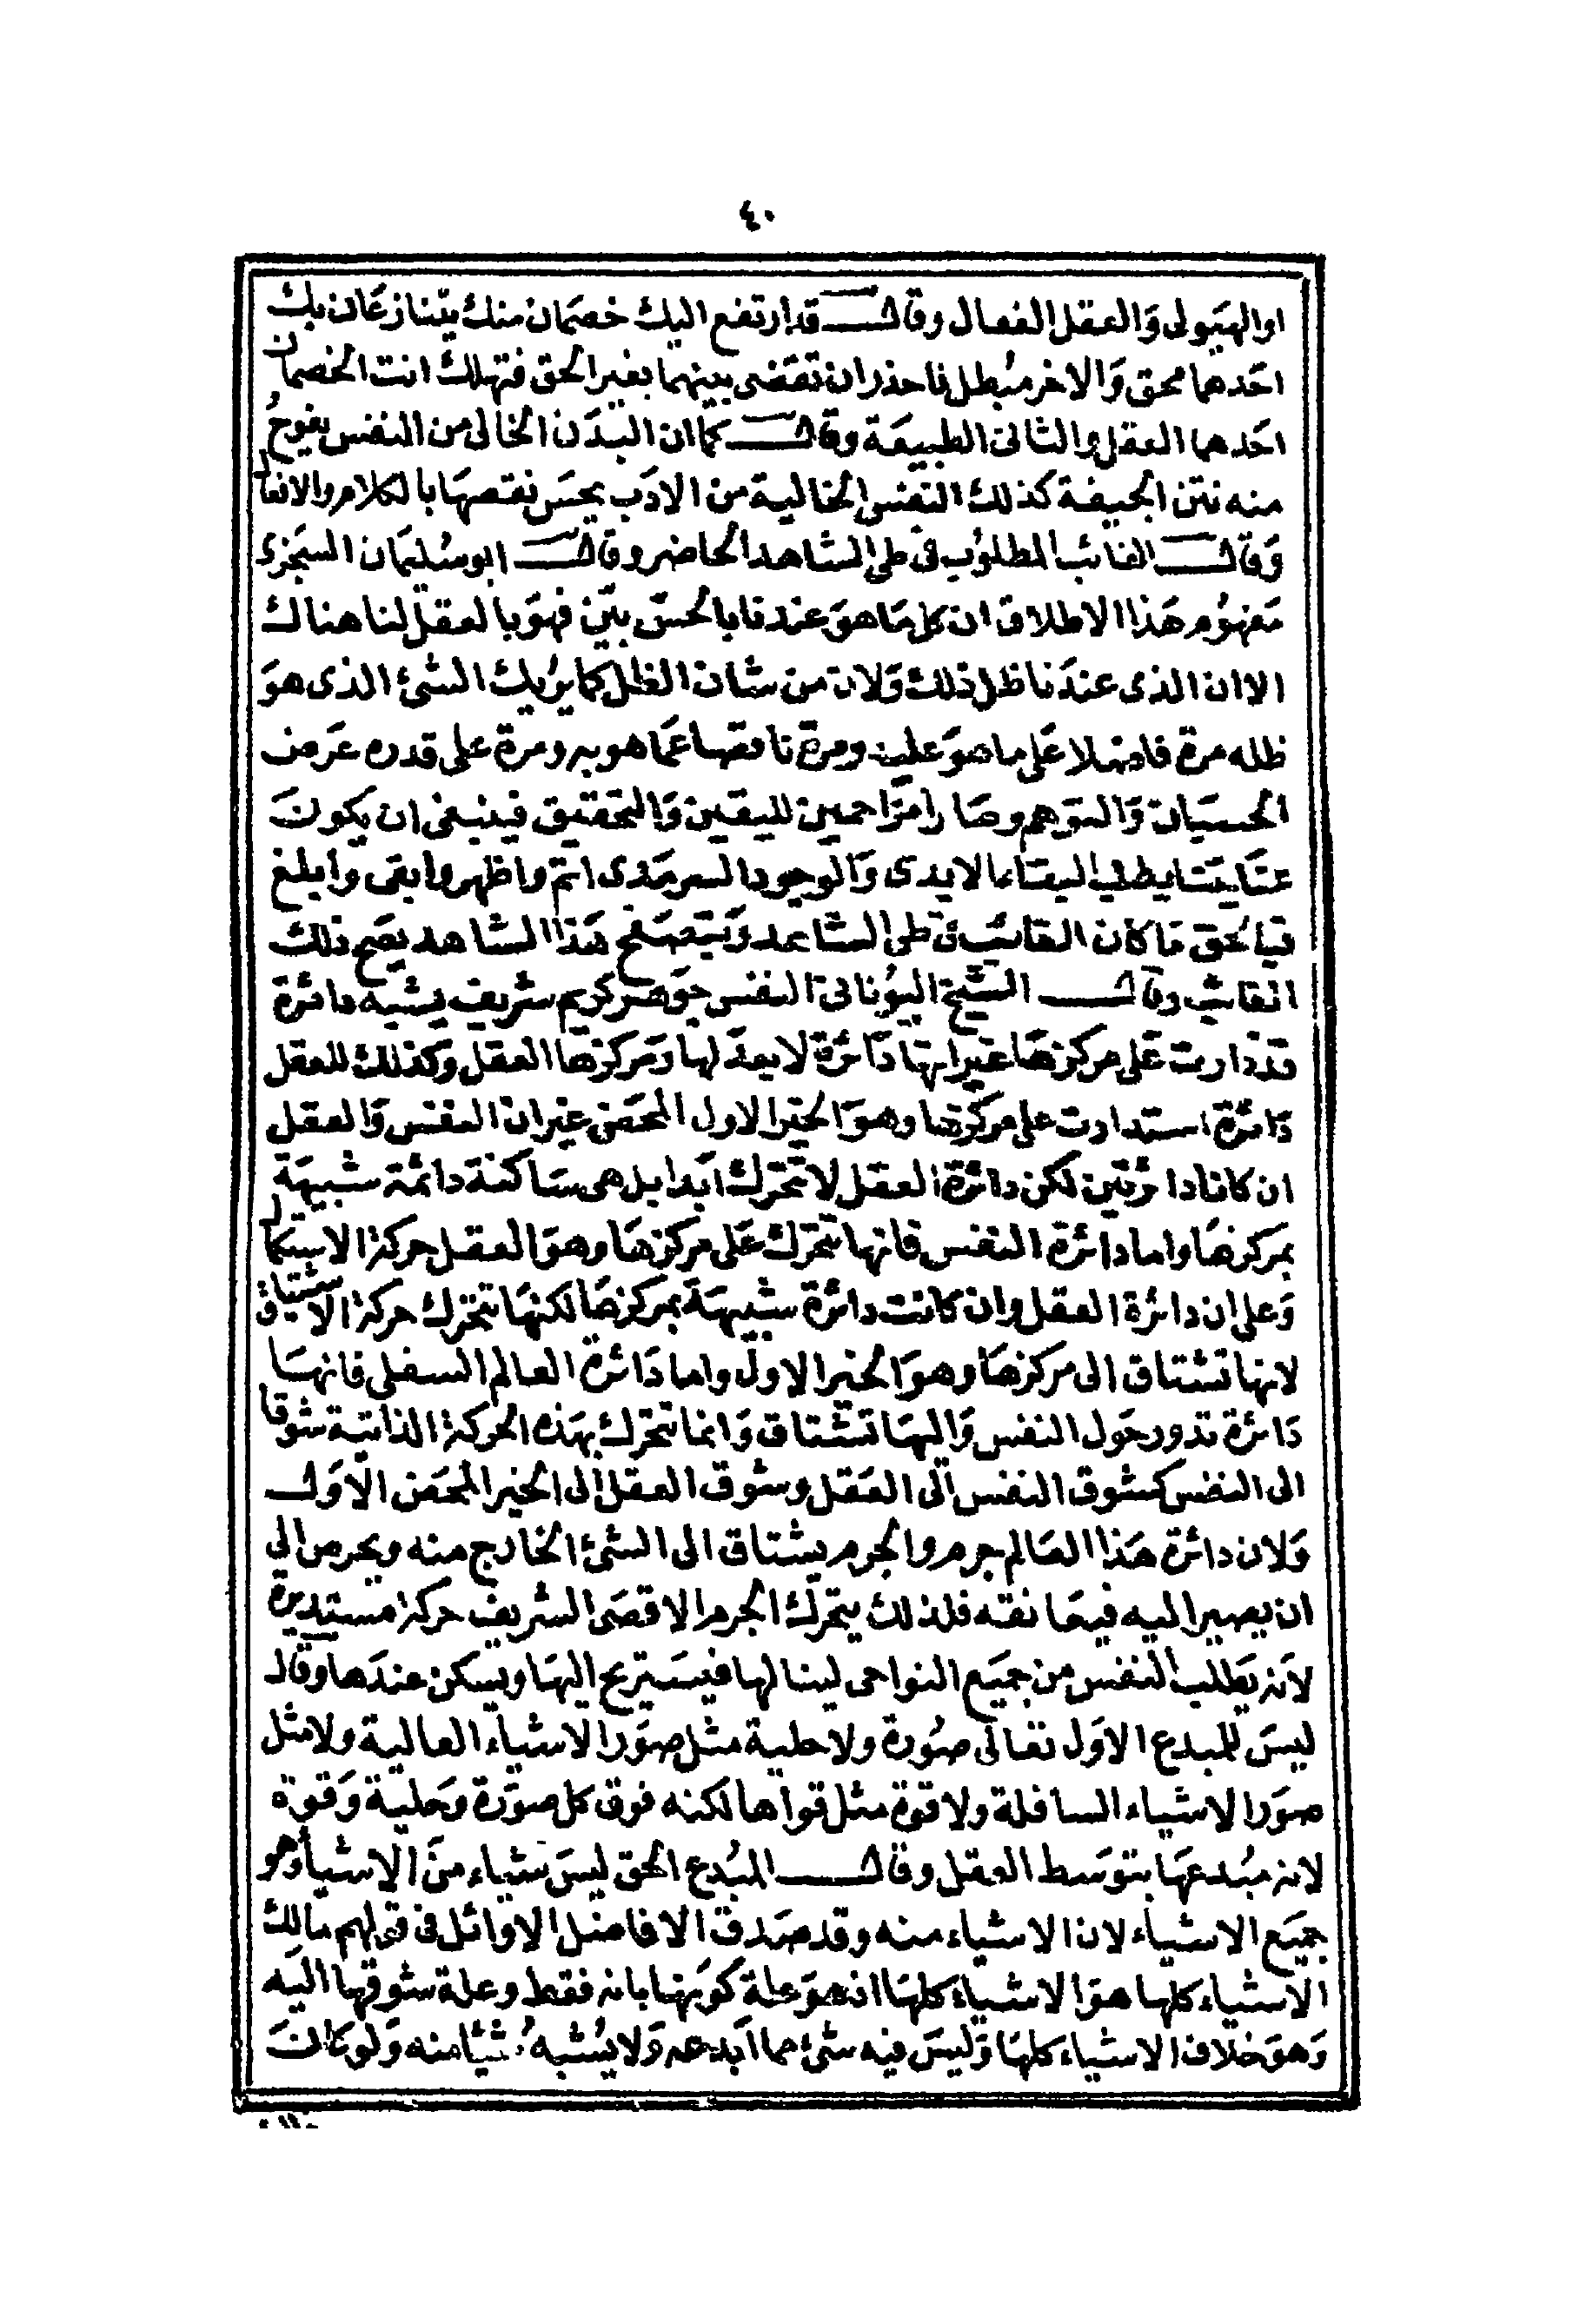 ٤٠
اوالهيولى وَالعقل الفعال وقال قدارتفع اليك خصمَان منك يتنازعَان بك
احَدهما محق وَالاخر مبُطل فاحذران تقضى بينهما بغيرالحق فتهلك انت الخصمان
احَدهما العقل والثانى الطبيعَة وقال كماان البدَن الخالى من النفس يفوحُ
منه نتن الجيفة كذلك النفس الخالية من الادَب يحسَ نقصهَا بالكلام والافعال
وَقال الغائب المطلوُب فى طى الشاهد الحاضر وقال ابوسُليمَان السجزى
مَفهوُم هَذا الاطلاق ان كل مَاهوَ عندنا بالحسّ بيّن فهوَ بالعقل لنا هناك
الاان الذى عندَنا ظل ذلك وَلان من شان الظل كما يريك الشئ الذى هوَ
ظله مرة فاضلا عَلى ماهوَ عليه ومرة ناقصا عمَا هوبه ومرة على قدره عرَض
الحسبَان وَالتوهم وصَارا مزَاحمين لليقين وَالتحقيق فينبغى ان يكونَ
عنَايتنا بطلب البقاء الابدى وَالوجود السرمَدى اتم واظهر وابقى وابلغ
فبالحق مَا كان الغائب فى طى الشاهد وَبتصفح هَذا الشاهد يصَح ذلك
الغائب وقال الشيخ اليوُنانى النفس جوَهر كريم شريف يشبه دائرة
قددارت عَلى مركزهَا غيرانها دَائرة لابعدَ لها وَمركزهَا العقل وكذلك للعقل
دَائرة استدارت على مركزها وهوَ الخير الاول المحَض غيران النفس وَالعقل
ان كانا دائرتين لكن دائرة العقل لا تتحرك ابَدا بل هى سَاكنة دائمة شبيهَة
بمركزهَا واما دائرة النفس فانها تتحرك عَلى مركزهَا وهوَ العقل حركة الاستكمال
وَعلى ان دائرة العقل وان كانت دائرة شبيهَة بمركزهَا لكنهَا تتحرك حركة الاشتياق
لانها تشتاق الى مركزهَا وهوَ الخير الاول واما دَائرة العالم السفلى فانهَا
دَائرة تدور حَول النفس وَاليهَا تشتاق وَانما تتحرك بهَذه الحركة الذاتية شوقا
الى النفس كشوق النفس الى العَقل وشوق العقل الى الخير المحَض الاوَل
وَلان دائرة هَذا العَالم جرم والجرم يشتاق الى الشئ الخارج منه ويحرص الى
ان يصير اليه فيعَانقه فلذلك يتحرك الجرم الاقصَى الشريف حركة مستديرة
لانه يَطلب النفس من جميَع النواحى لينالها فيستريح اليهَا ويسكن عندَها وقال
ليسَ للمبدع الاوَل تعَالى صُورة ولاحلية مثل صوَر الاشياء العالية ولامثل
صوَر الاشياء السافلة ولا قوة مثل قواها لكنه فوق كل صوَرة وحَلية وَقوة
لانه مبُدعهَا بتوسَط العقل وقال المبُدع الحق ليسَ شياء منَ الاشياء وَهو
جميَع الاشياء لان الاشياء منه وقد صَدق الافاضل الاوائل فى قولهم مالك
الاشياء كلها هوَ الاشياء كلهَا اذ هوَ علة كونها بانه فقط وعلة شوقها اليَه
وَهوَ خلاف الاشياء كلهَا وَليسَ فيه شئ مما ابَدعه وَلا يُشبهُ شيئا منه وَلوكانَ